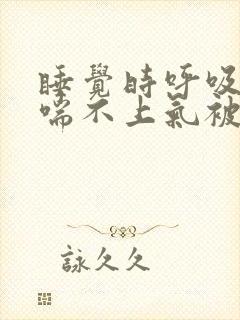 睡覺時呼吸
喘不上氣被
詠久久